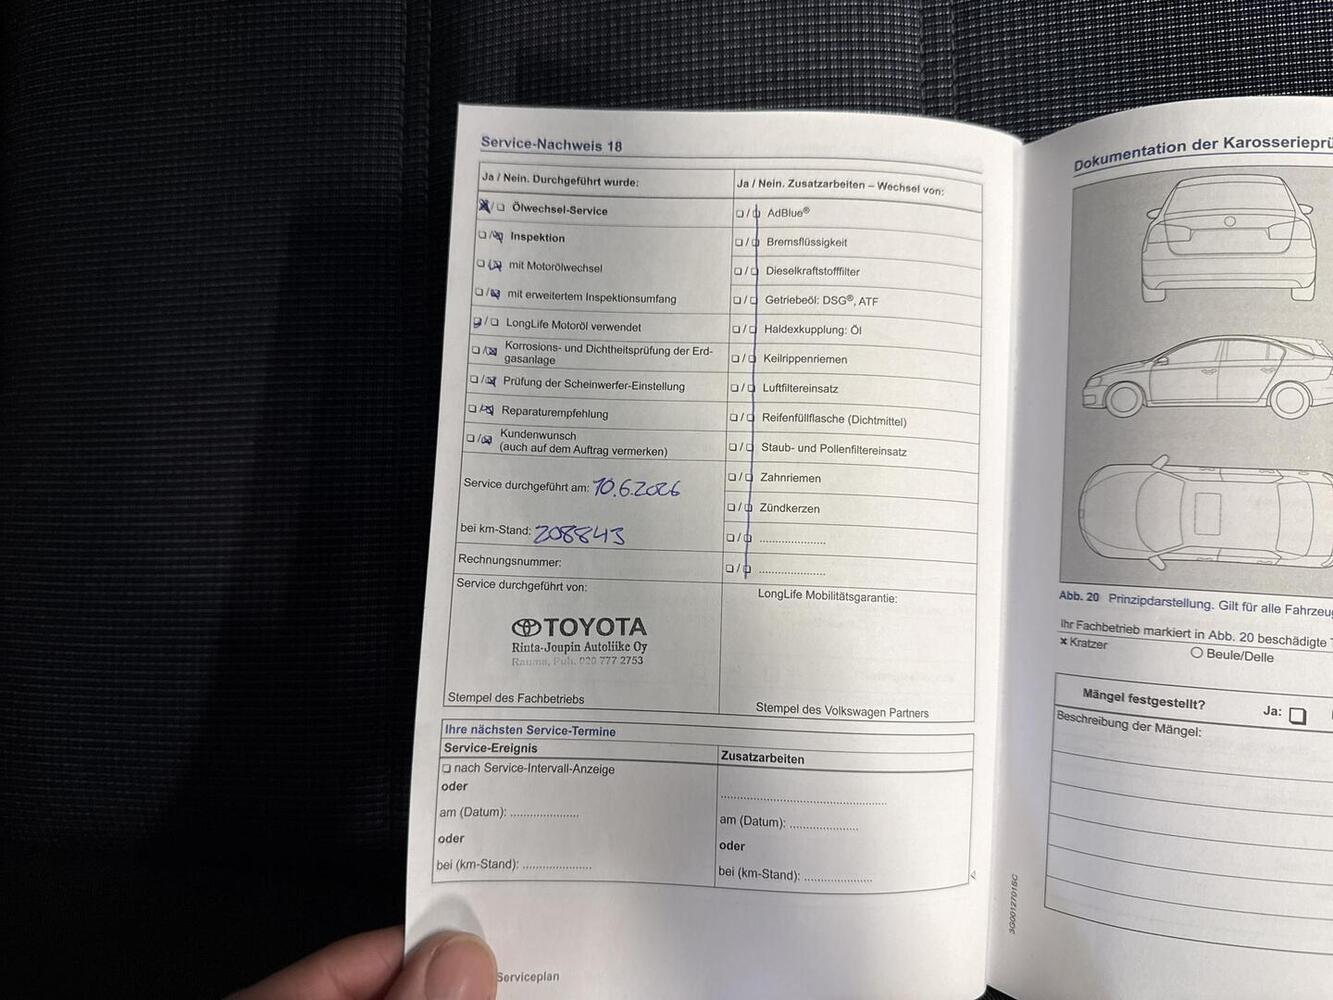 Service-Nachweis 18
Ja / Nein. Durchgeführt wurde:
☒/☐ Ölwechsel-Service
☐/☒ Inspektion
☐/☒ mit Motorölwechsel
☐/☒ mit erweitertem Inspektionsumfang
☒/☐ LongLife Motoröl verwendet
☐/☒ Korrosions- und Dichtheitsprüfung der Erd-
gasanlage
☐/☒ Prüfung der Scheinwerfer-Einstellung
☐/☒ Reparaturempfehlung
☐/☒ Kundenwunsch
(auch auf dem Auftrag vermerken)
Service durchgeführt am: 10.6.2026
bei km-Stand: 208843
Rechnungsnummer:
Service durchgeführt von:
TOYOTA
Rinta-Joupin Autoliike Oy
Rauma, Puh. 020 777 2753
Stempel des Fachbetriebs
Ja / Nein. Zusatzarbeiten – Wechsel von:
☐/☐ AdBlue®
☐/☐ Bremsflüssigkeit
☐/☐ Dieselkraftstofffilter
☐/☐ Getriebeöl: DSG®, ATF
☐/☐ Haldexkupplung: Öl
☐/☐ Keilrippenriemen
☐/☐ Luftfiltereinsatz
☐/☐ Reifenfüllflasche (Dichtmittel)
☐/☐ Staub- und Pollenfiltereinsatz
☐/☐ Zahnriemen
☐/☐ Zündkerzen
☐/☐ ......................
☐/☐ ......................
LongLife Mobilitätsgarantie:
Stempel des Volkswagen Partners
Ihre nächsten Service-Termine
Service-Ereignis
☐ nach Service-Intervall-Anzeige
oder
am (Datum): ......................
oder
bei (km-Stand): ......................
Zusatzarbeiten
......................................................
am (Datum): ......................
oder
bei (km-Stand): ......................
Serviceplan
Dokumentation der Karosserieprü
Abb. 20 Prinzipdarstellung. Gilt für alle Fahrzeu
Ihr Fachbetrieb markiert in Abb. 20 beschädigte
× Kratzer
○ Beule/Delle
Mängel festgestellt?
Ja: ☐
Beschreibung der Mängel: